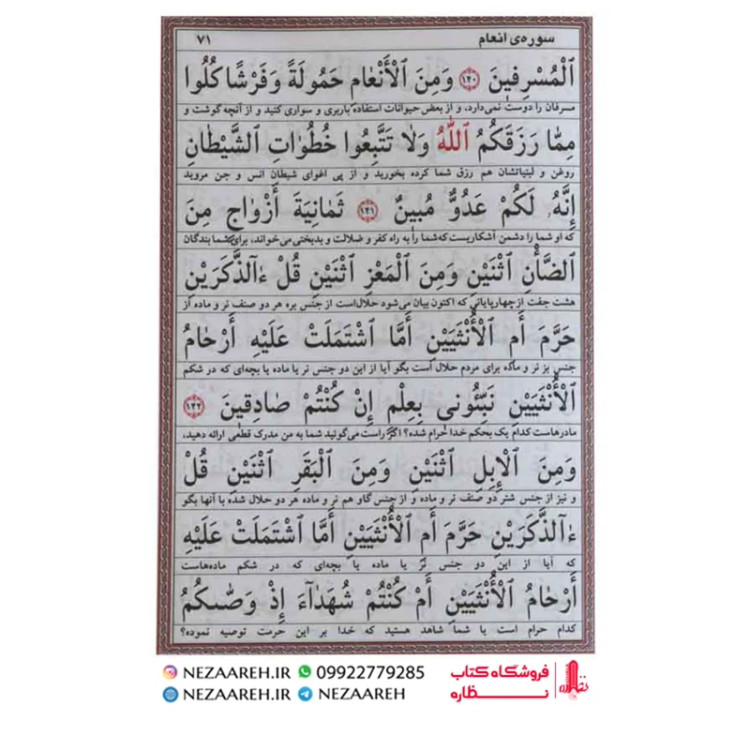 سوره‌ی انعام
۷۱
ٱلْمُسْرِفِينَ ۱۴۰ وَمِنَ ٱلْأَنْعَامِ حَمُولَةً وَفَرْشًا كُلُوا
مسرفان را دوست نمی‌دارد، و از بعض حیوانات استفاده باربری و سواری کنید و از آنچه گوشت و
مِمَّا رَزَقَكُمُ ٱللَّهُ وَلَا تَتَّبِعُوا خُطُوَاتِ ٱلشَّيْطَانِ
روغن و لبنیاتشان هم رزق شما کرده بخورید و از پی اغوای شیطان انس و جن مروید
إِنَّهُ لَكُمْ عَدُوٌّ مُبِينٌ ۱۴۱ ثَمَانِيَةَ أَزْوَاجٍ مِنَ
که او شما را دشمن آشکاریست که شما را به راه کفر و ضلالت و بدبختی می‌خواند، برای شما بندگان
ٱلضَّأْنِ ٱثْنَيْنِ وَمِنَ ٱلْمَعْزِ ٱثْنَيْنِ قُلْ ءَآلذَّكَرَيْنِ
هشت جفت از چهارپایانی که اکنون بیان می‌شود حلال است از جنس بره هر دو صنف نر و ماده از
حَرَّمَ أَمِ ٱلْأُنْثَيَيْنِ أَمَّا ٱشْتَمَلَتْ عَلَيْهِ أَرْحَامُ
جنس بز نر و ماده برای مردم حلال است بگو آیا از این دو جنس نر یا ماده یا بچه‌ای که در شکم
ٱلْأُنْثَيَيْنِ نَبِّئُونِي بِعِلْمٍ إِنْ كُنْتُمْ صَادِقِينَ ۱۴۲
مادرهاست کدام یک بحکم خدا حرام شده؟ اگر راست می‌گوئید شما به من مدرک قطعی ارائه دهید،
وَمِنَ ٱلْإِبِلِ ٱثْنَيْنِ وَمِنَ ٱلْبَقَرِ ٱثْنَيْنِ قُلْ
و نیز از جنس شتر دو صنف نر و ماده و از جنس گاو هم نر و ماده هر دو حلال شده با آنها بگو
ءَآلذَّكَرَيْنِ حَرَّمَ أَمِ ٱلْأُنْثَيَيْنِ أَمَّا ٱشْتَمَلَتْ عَلَيْهِ
که آیا از این دو جنس نر یا ماده یا بچه‌ای که در شکم ماده‌هاست
أَرْحَامُ ٱلْأُنْثَيَيْنِ أَمْ كُنْتُمْ شُهَدَآءَ إِذْ وَصَّىٰكُمُ
کدام حرام است یا شما شاهد هستید که خدا بر این حرمت توصیه نموده؟
NEZAAREH.IR 09922779285
NEZAAREH.IR NEZAAREH
فروشگاه کتاب
نظاره